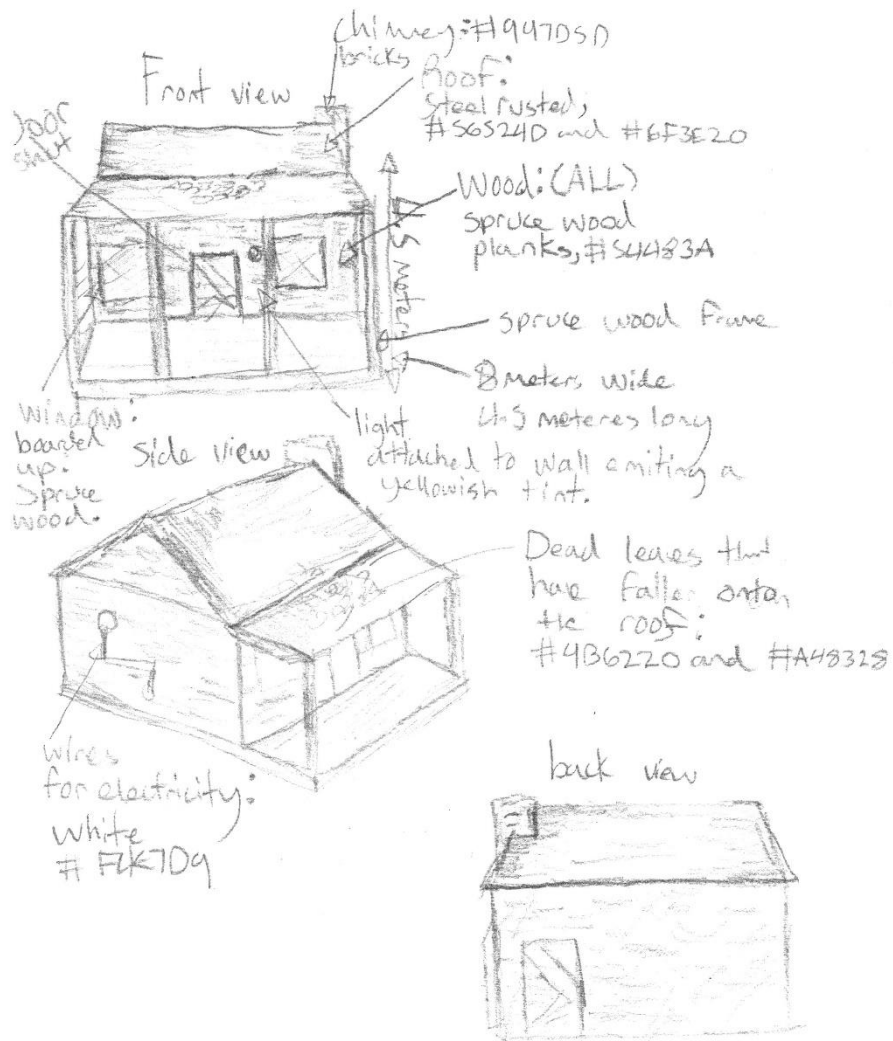 chimey: #947D5D
bricks
Front view
Roof:
Steel rusted,
#56524D and #6F3E20
Door
shut
Wood: (ALL)
spruce wood
planks, #54483A
4.5 meters
spruce wood frame
8 meters wide
4.5 meteres long
window:
boarded
up.
Spruce
wood.
light
attached to wall emiting a
yellowish tint.
side view
Dead leaves that
have fallen onto
the roof:
#4B6220 and #A48328
wires
for electricity:
white
#
back view